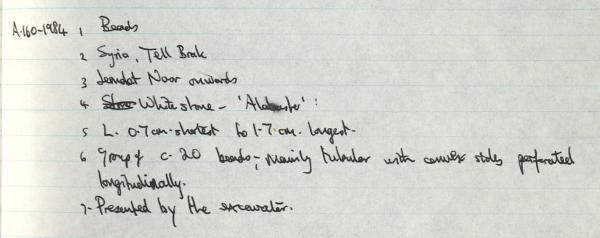 A.160-1984 1 Beads
2 Syria, Tell Brak
3 Jemdat Nasr onwards
4 Stone White stone - 'Alabaster' :
5 L. 0.7cm. shortest to 1.7cm. longest.
6 Group of c. 20 beads, mainly tubular with convex sides perforated
longitudinally.
7. Presented by the excavator.